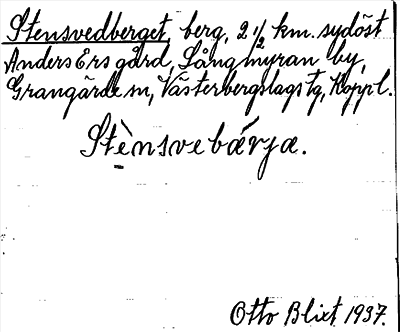 Stensvedberget, berg, 2 1/2 km. sydöst
Anders Ers gård, Långmyran by,
Grangärde sn, Västerbergslags tg, Koppl.
Stènsvebärja.
Otto Blixt 1937.